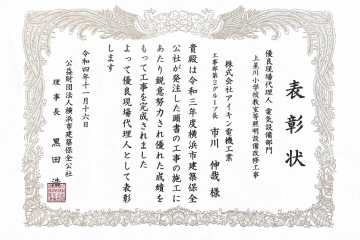 表彰状
優良現場代理人 電気設備部門
上星川小学校教室等照明設備改修工事
株式会社アイキン電機工業
工事部第2グループ長 市川 伸哉 様
貴殿は令和三年度横浜市建築保全
公社が発注した頭書の工事の施工に
あたり鋭意努力され優れた成績を
もって工事を完成されました
よって優良現場代理人として表彰
します
令和四年十一月十六日
公益財団法人横浜市建築保全公社
理事長 黒田 浩